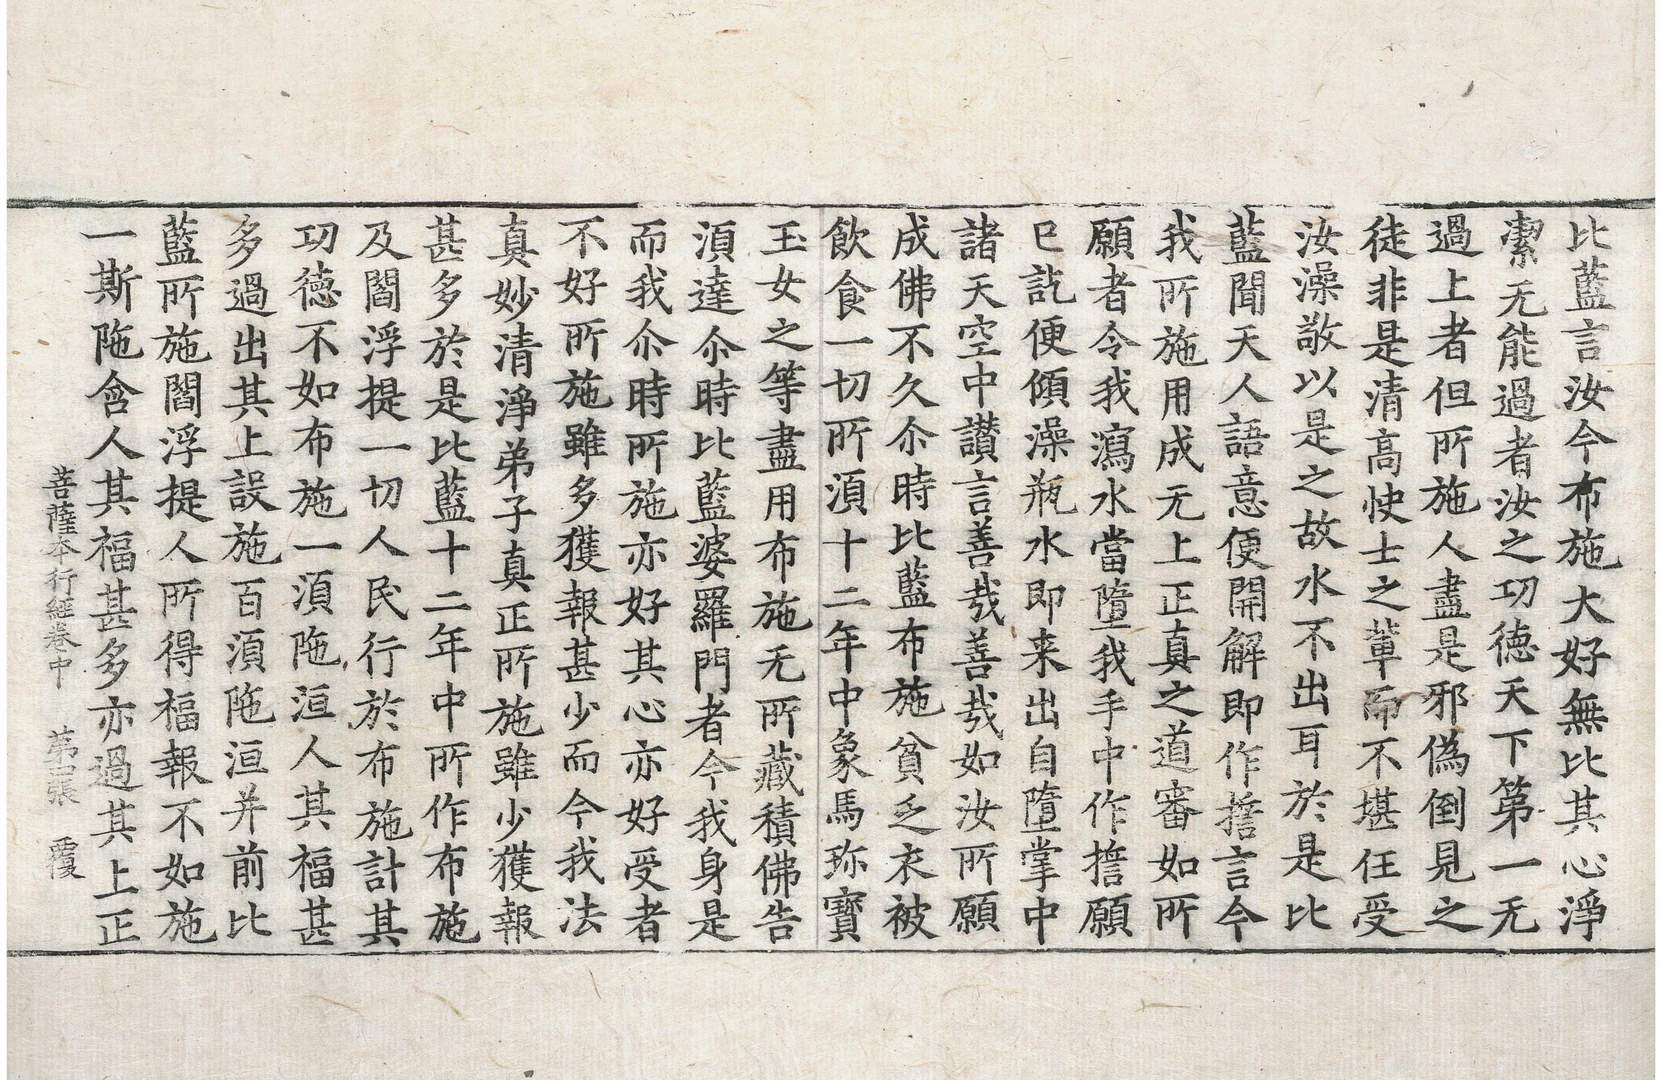 比藍言汝今布施大好無比其心淨
潔无能過者汝之功德天下第一无
過上者但所施人盡是邪偽倒見之
徒非是清高快士之軰而不堪任受
汝澡敬以是之故水不出耳於是比
藍聞天人語意便開解即作㧱言今
我所施用成无上正真之道審如所
願者令我瀉水當墮我手中作㧱願
已訖便傾澡瓶水即来出自墮掌中
諸天空中讃言善㢤善㢤如汝所願
成佛不久尒時比藍布施貧乏衣被
飲食一切所湏十二年中象馬珎寶
玉女之等盡用布施无所藏積佛告
湏達尒時比藍婆羅門者今我身是
而我尒時所施亦好其心亦好受者
不好所施雖多獲報甚少而今我法
真妙清淨弟子真正所施雖少獲報
甚多於是比藍十二年中所作布施
及閻浮提一切人民行於布施計其
功德不如布施一湏陁洹人其福甚
多過出其上設施百湏陁洹并前比
藍所施閻浮提人所得福報不如施
一斯陁含人其福甚多亦過其上正
菩薩本行經卷中 苐二張 覆